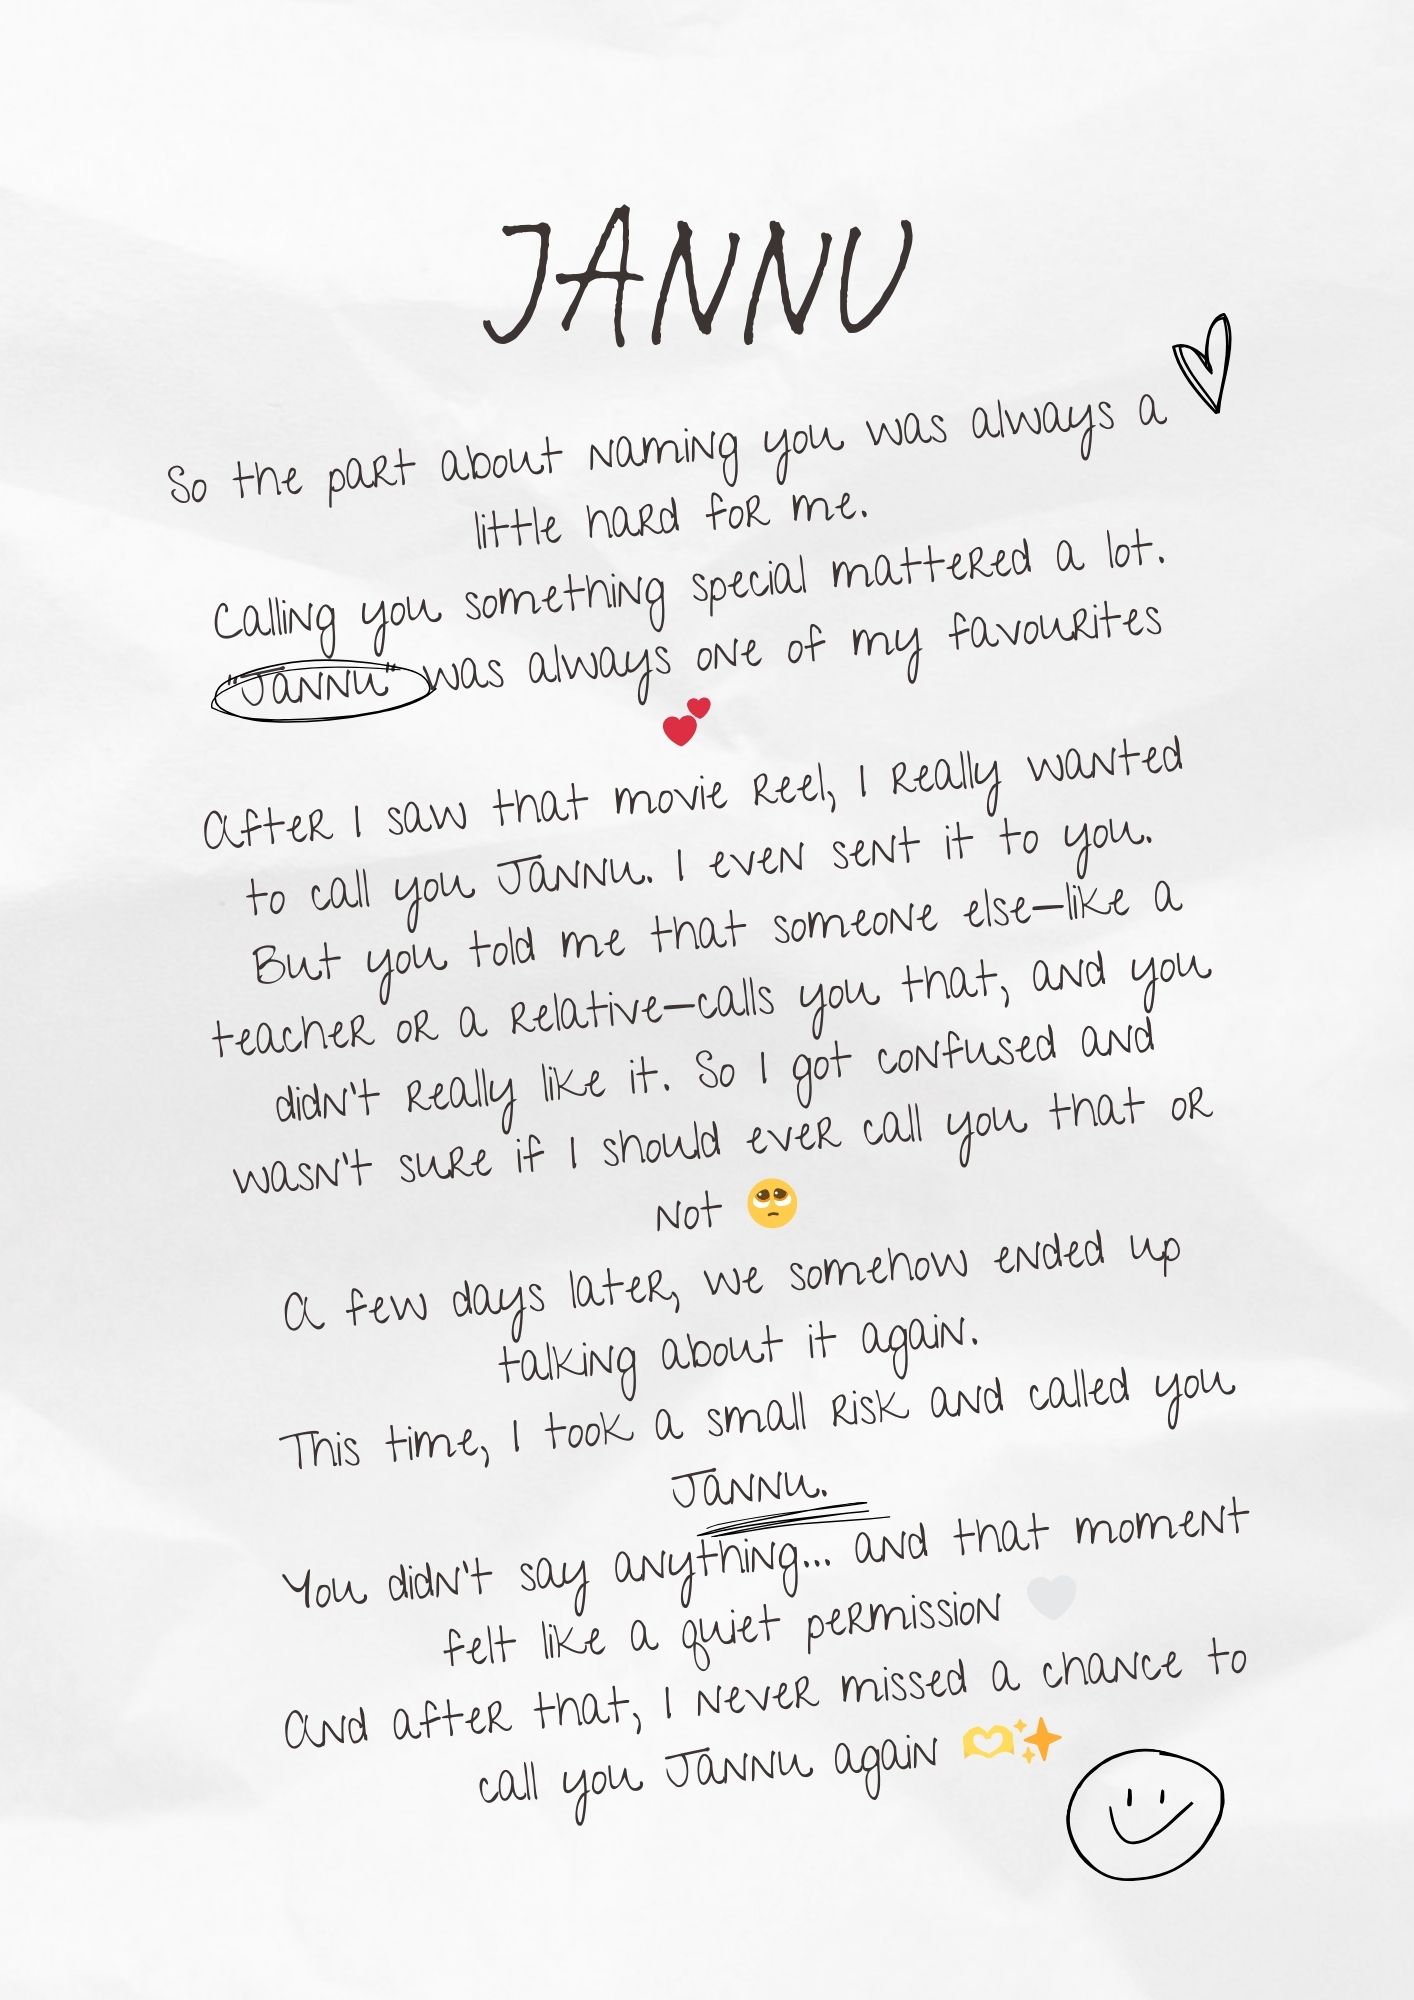 JANNU
So the part about naming you was always a
little hard for me.
Calling you something special mattered a lot.
"Jannu" was always one of my favourites
💕
After I saw that movie reel, I really wanted
to call you Jannu. I even sent it to you.
But you told me that someone else—like a
teacher or a relative—calls you that, and you
didn't really like it. So I got confused and
wasn't sure if I should ever call you that or
not 🥺
A few days later, we somehow ended up
talking about it again.
This time, I took a small risk and called you
Jannu.
You didn't say anything... and that moment
felt like a quiet permission 🤍
And after that, I never missed a chance to
call you Jannu again 🫶✨